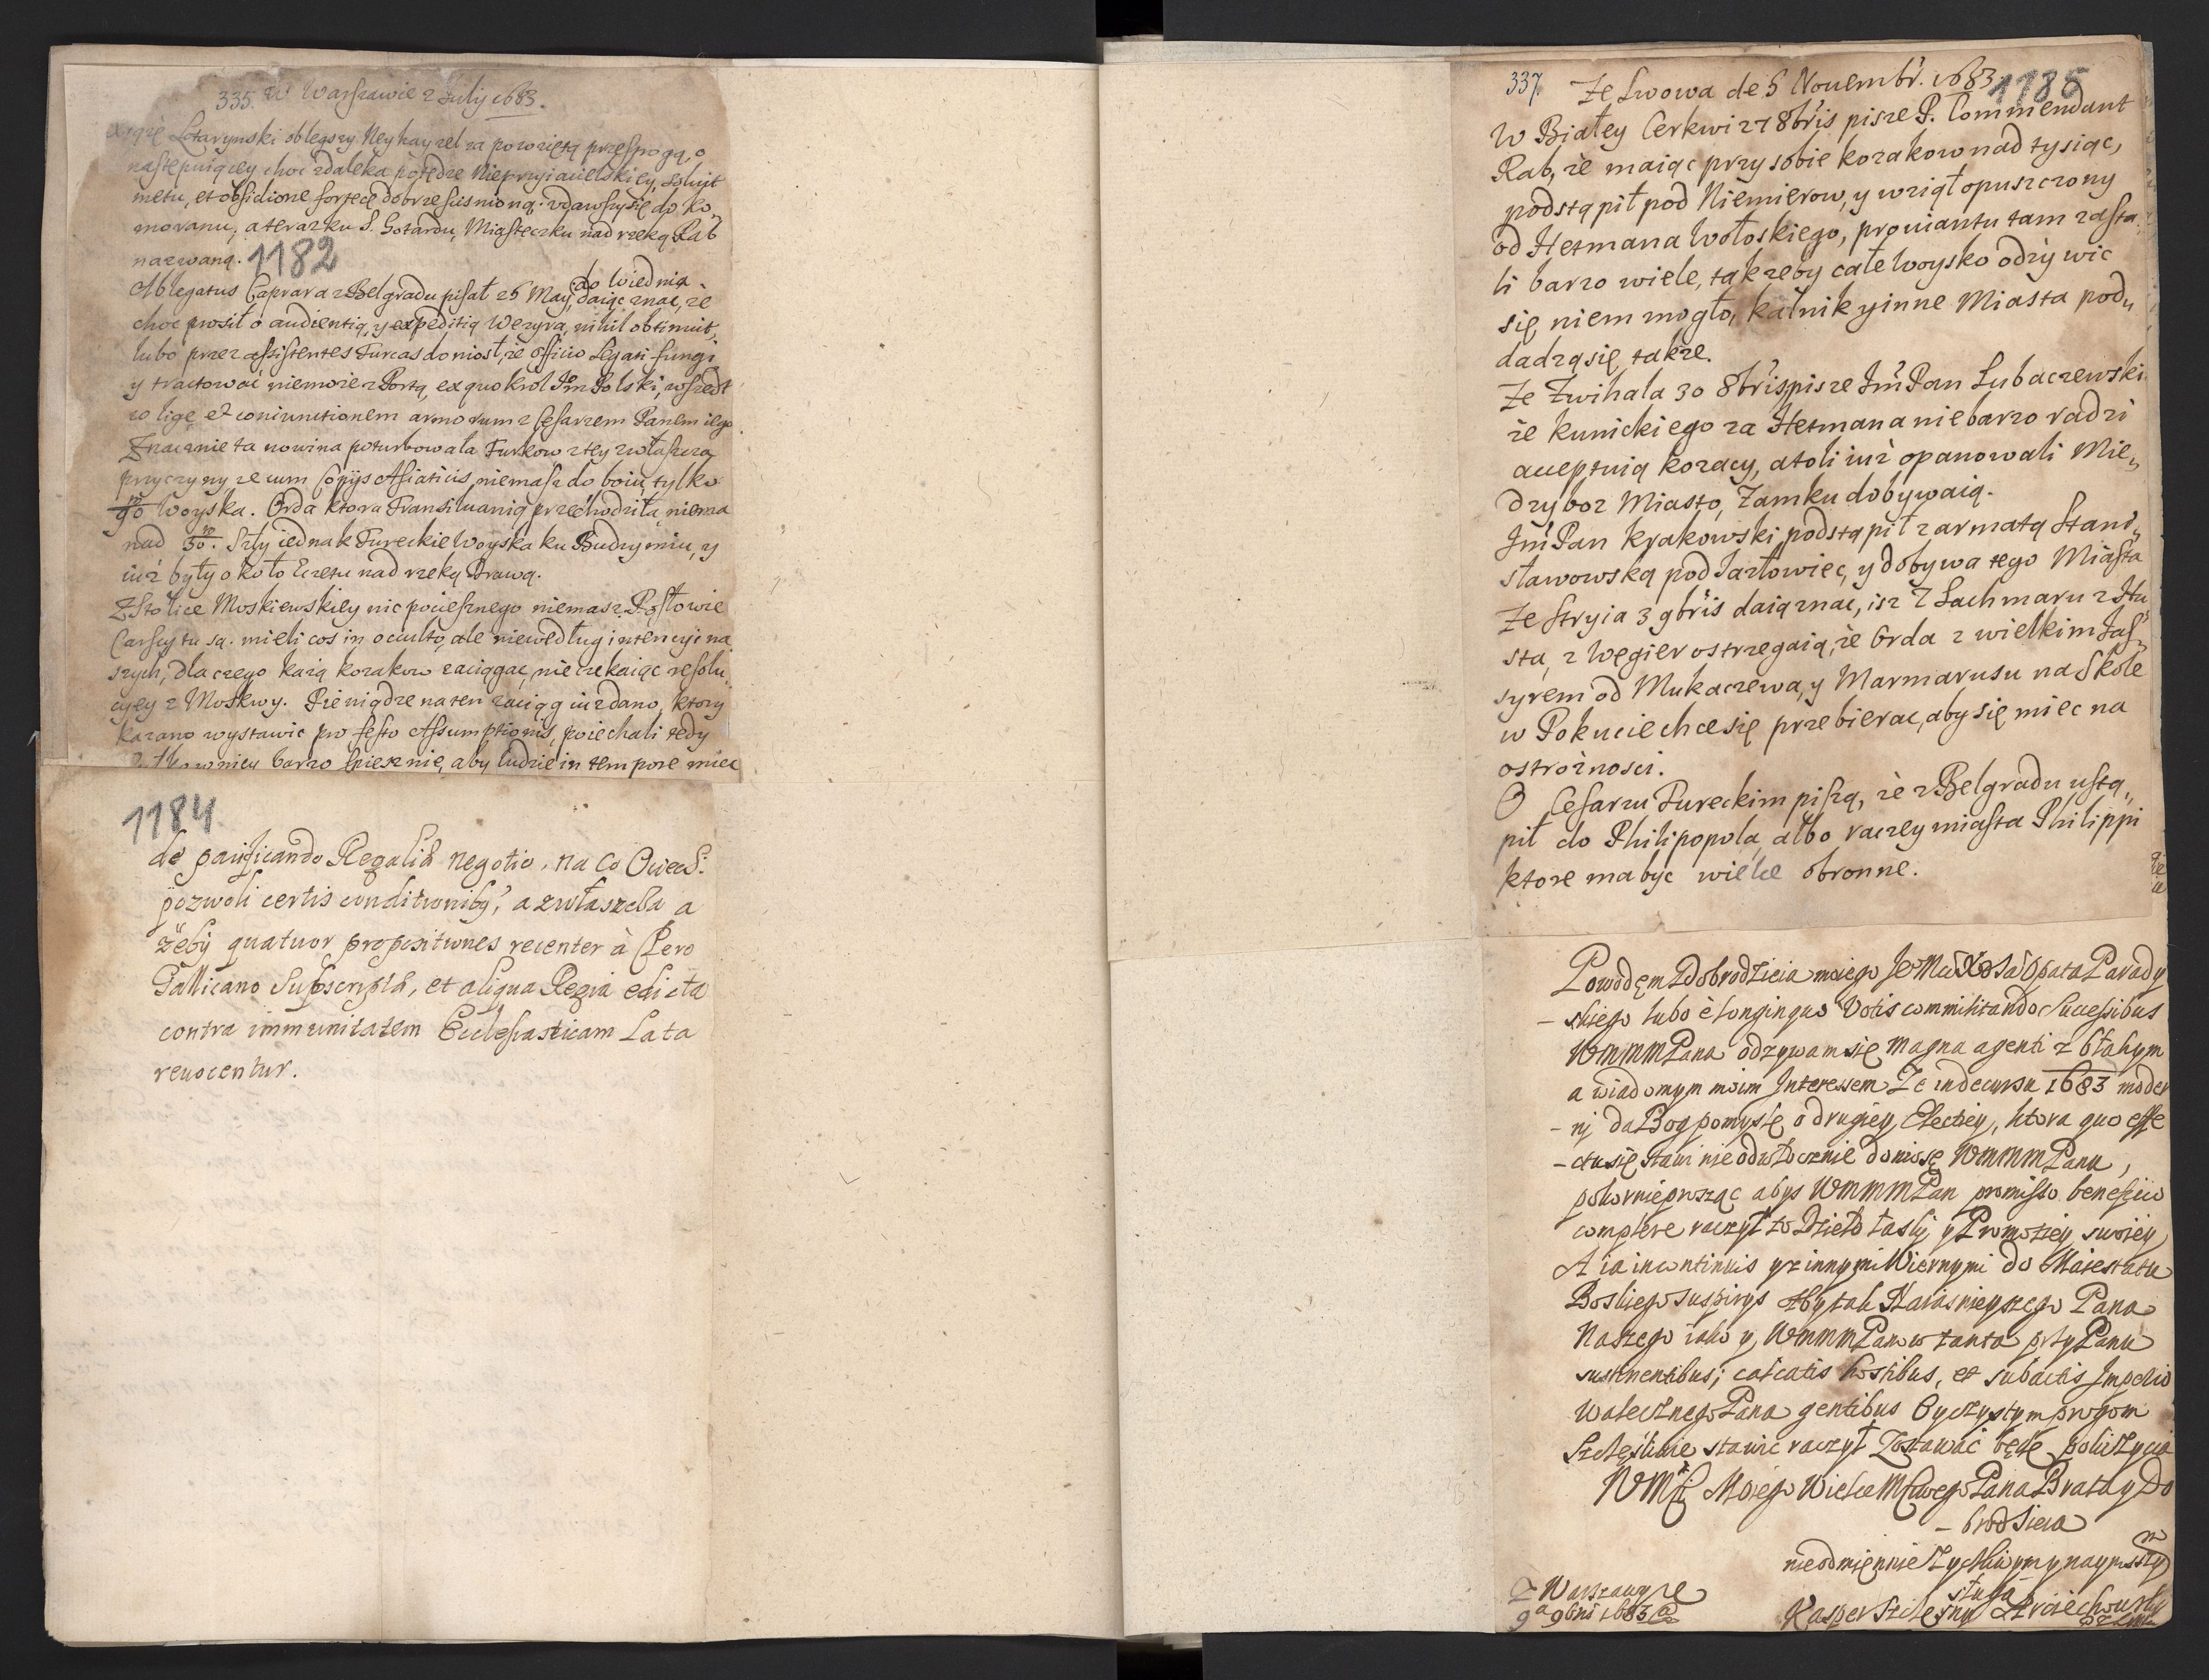 335. W Warszawie 2 Julij 1683.
Xiąże Lotarynski oblegszy Neyhayzel za powziętą przestrogą, o
następuiącey choc zdaleka potędze Nieprzyiacielskiey, solvit
metu, et obsidione fortecę dobrze scisnioną. udawszy się do Ko„
moranu, a teraz ku S. Gotardu, Miasteczku nad rzeką Rab
nazwaną. 1182
Ablegatus Caprara z Belgradu pisał 25 May, do Wiednia daiąc znac, że
choc prosił o audientią, y expeditią Wezyra, nihil obtinuit,
lubo przez assistentes Turcas doniosł, że officio Legati fungi
y tractowac niemoże z Portą, ex quo Krol Jm Polski, wszedł
w ligę et coniunctionem armorum z Cesarzem Panem iego
Znacznie ta nowina poturbowała Turkow z tey zwłaszcza
przyczyny ze cum Copijs Asiaticis niemasz do boiu, tylko
90 m woyska. Orda ktora Transilvanią przechodziła, niema
nad 30 m. Szły iednak Tureckie Woyska ku Budzyniu, y
iuż były około Eczetu nad rzeką Drawą.
Z Stolice Moskiewskiey nic pociesznego niemasz. Posłowie
Carscy tu są. mieli cos in occulto, ale niewedług intencyi na„
szych, dla czego każą kozakow zaciągac, nie czekaiąc resolu„
cyey z Moskwy. Pieniądze na ten zaciąg iuż dano, ktory
kazano wystawic pro festo Assumptionis, poiechali tedy
Pułkownicy barzo spiesznie, aby ludzie in tempore miec
1184
de pacificando Regalia negotio, na co Ociec S:
pozwoli certis conditionibq, a zwłaszcza a
żeby quatuor propositiones recenter à Clero
Gallicano Subscripta, et aliqua Regia edicta
contra immunitatem Ecclesiasticam Lata
revocentur.
337. Ze Lwowa de 5 Novembr. 1683. 1185
W Białey Cerkwi 27 8bris pisze P. Commendant
Rab, że maiąc przy sobie kozakow nad tysiąc,
podstąpił pod Niemierow, y wziął opuszczony
od Hetmana Wołoskiego, prowiantu tam zasta„
li barzo wiele, tak żeby całe Woysko odzywic
się niem mogło, Kalnik y inne Miasta pod„
dadzą się także.
Ze Zwihala 30 8bris pisze Jm Pan Lubaczewski
że Kunickiego za Hetmana nie barzo radzi
acceptuią kozacy, atoli iuż opanowali Mie„
dzyboz Miasto, Zamku dobywaią.
Jm Pan Krakowski podstąpił z armatą Stani„
sławowską pod Jazłowiec, y dobywa tego Miasta
Ze Stryia 3 9bris daią znac, isz z Lachmaru z Hu
sta, z Węgier ostrzegaią, że Orda z wielkim Jas„
syrem od Mukaczewa, y Marmarusu na Skole
w Pokucie chce się przebierac, aby się miec na
ostrożnosci.
O Cesarzu Tureckim piszą, że z Belgradu ustą„
pił do Philipopola, albo raczey miasta Philippi
ktore ma byc wielce obronne.
Powodem Dobrodzieia moiego Je Mci Xdza Opata Parady
– skiego lubo è longinquo Votis commilitando Successibus
WMMMPana odzywam się magna agenti z błahym
a wiadomym moim Interessem Ze in decursu 1683 moder
– ni da Bog pomyslę o drugiey Electiey, ktora quo effe
– ctu się stani nieodwłocznie doniosę WMMMPanu,
pokornie prosząc abys WMMMPan promisso beneficio
complere raczył to Dzieło łaski y Promotiey swoiey
A ia incontinuis y z innymi Wiernymi do Maiestatu
Boskiego suspirys zby tak Naiasnieyszego Pana
Naszego iako y WMMMPanow tanta przy Panu
sustinentibus; calcatis hostibus, et subactis Imperio
Walecznego Pana gentibus Oyczystym progom
Szczęśliwie stawic raczył Zostawac będę poki życia
WMści Moiego Wielce Mściwego Pana Brata y Do
– brodzieia
nieodmiennie życzliwym y nayniższym
sługą
Z Warszawy
9 a 9bris 1683
Kasper Szczesny